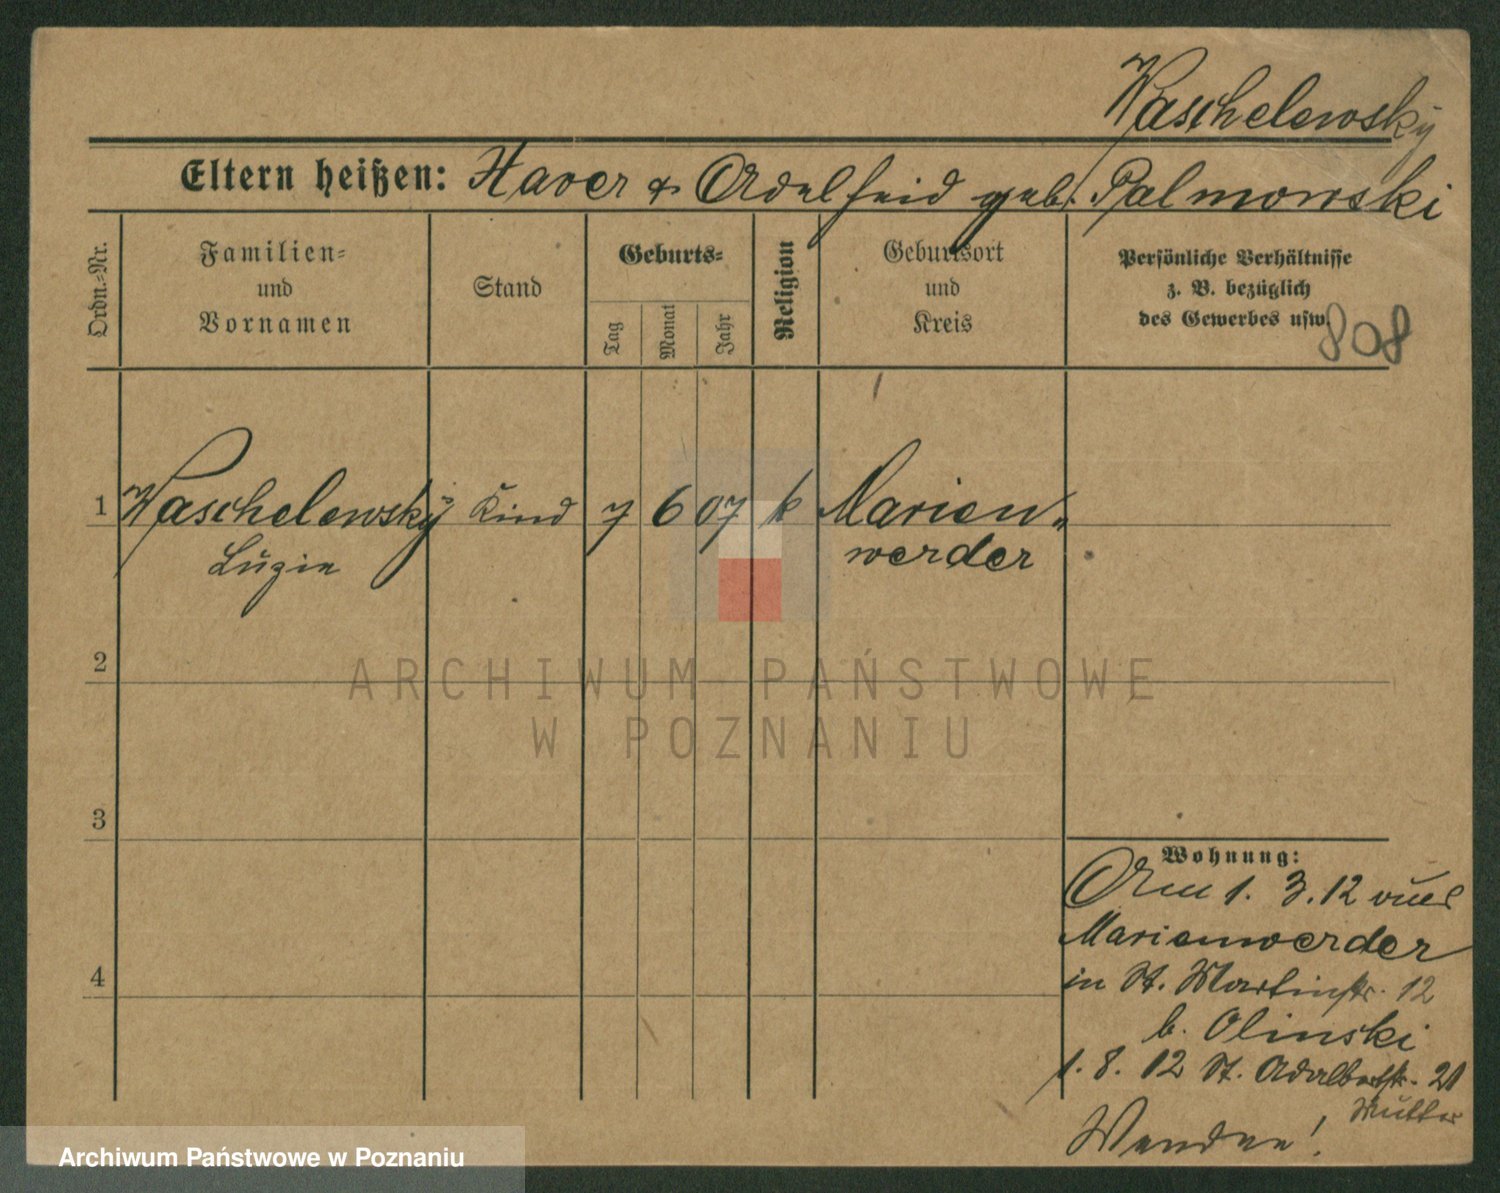 Waschelewsky
Eltern heißen: Xaver & Adelheid geb. Palmowski
Ordn.-Nr.
Familien-
und
Vornamen
Stand
Geburts-
Tag
Monat
Jahr
Religion
Geburtsort
und
Kreis
Persönliche Verhältnisse
z. B. bezüglich
des Gewerbes usw.
808
1 Waschelewsky Kind 7 6 07 k Marien-
Luzie werder
2
3
4
ARCHIWUM PAŃSTWOWE
W POZNANIU
Wohnung:
Am 1. 3. 12 aus
Marienwerder
in St. Martinstr. 12
b. Olinski
1. 8. 12 St. Adalbertstr. 21
Mutter
Wenden!
Archiwum Państwowe w Poznaniu